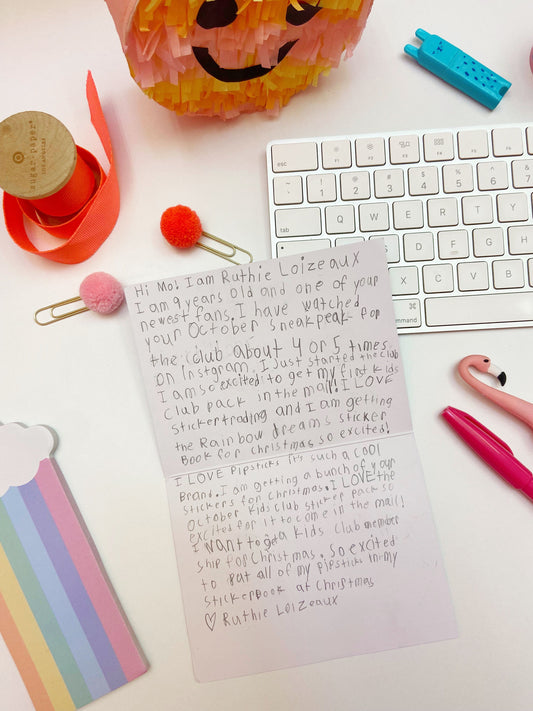 sugar paper
LOS ANGELES
esc
F1
F2
F3
F4
F5
F6
F7
~ `
! 1
@ 2
# 3
$ 4
% 5
^ 6
& 7
tab
Q W E R T Y U
D F G H
X C V B N M
command
⌘
Hi Mo! I am Ruthie Loizeaux
I am 9 years old and one of your
newest fans. I have watched
your October sneak peak for
the club about 4 or 5 times
on Instgram. I just started the club
I am so excited to get my first kids
club pack in the mail! I LOVE
Sticker trading and I am getting
the Rainbow dreams sticker
Book for christmas so excited!
I LOVE Pipsticks it's such a cool
Brand. I am getting a bunch of your
stickers for christmas. I LOVE the
October Kids club sticker pack so
excited for it to come in the mail!
I want to get a kids club member
ship for Christmas. So excited
to put all of my pipsticks in my
sticker book at Christmas
♡ Ruthie Loizeaux